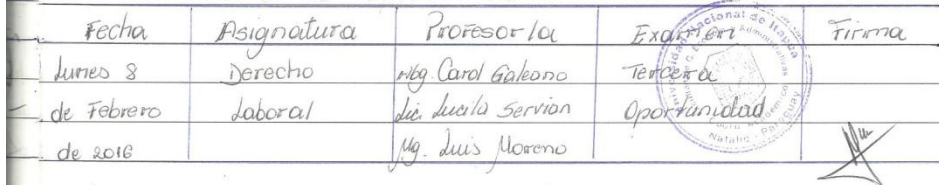 Fecha Asignatura Profesor/a Examen Firma
Lunes 8 Derecho Abg. Carol Galeano Tercera
de Febrero Laboral Lic. Lucila Servian Oportunidad
de 2016 Mg. Luis Moreno
Universidad Nacional de Itapúa
Natalio - Paraguay